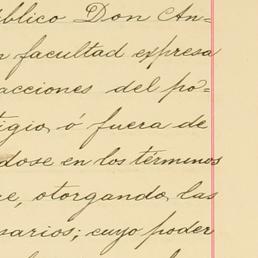 úblico Don An=
n facultad expresa
acciones del po=
tigio, ó fuera de
dose en los términos
re, otorgando, las
sarios; cuyo poder